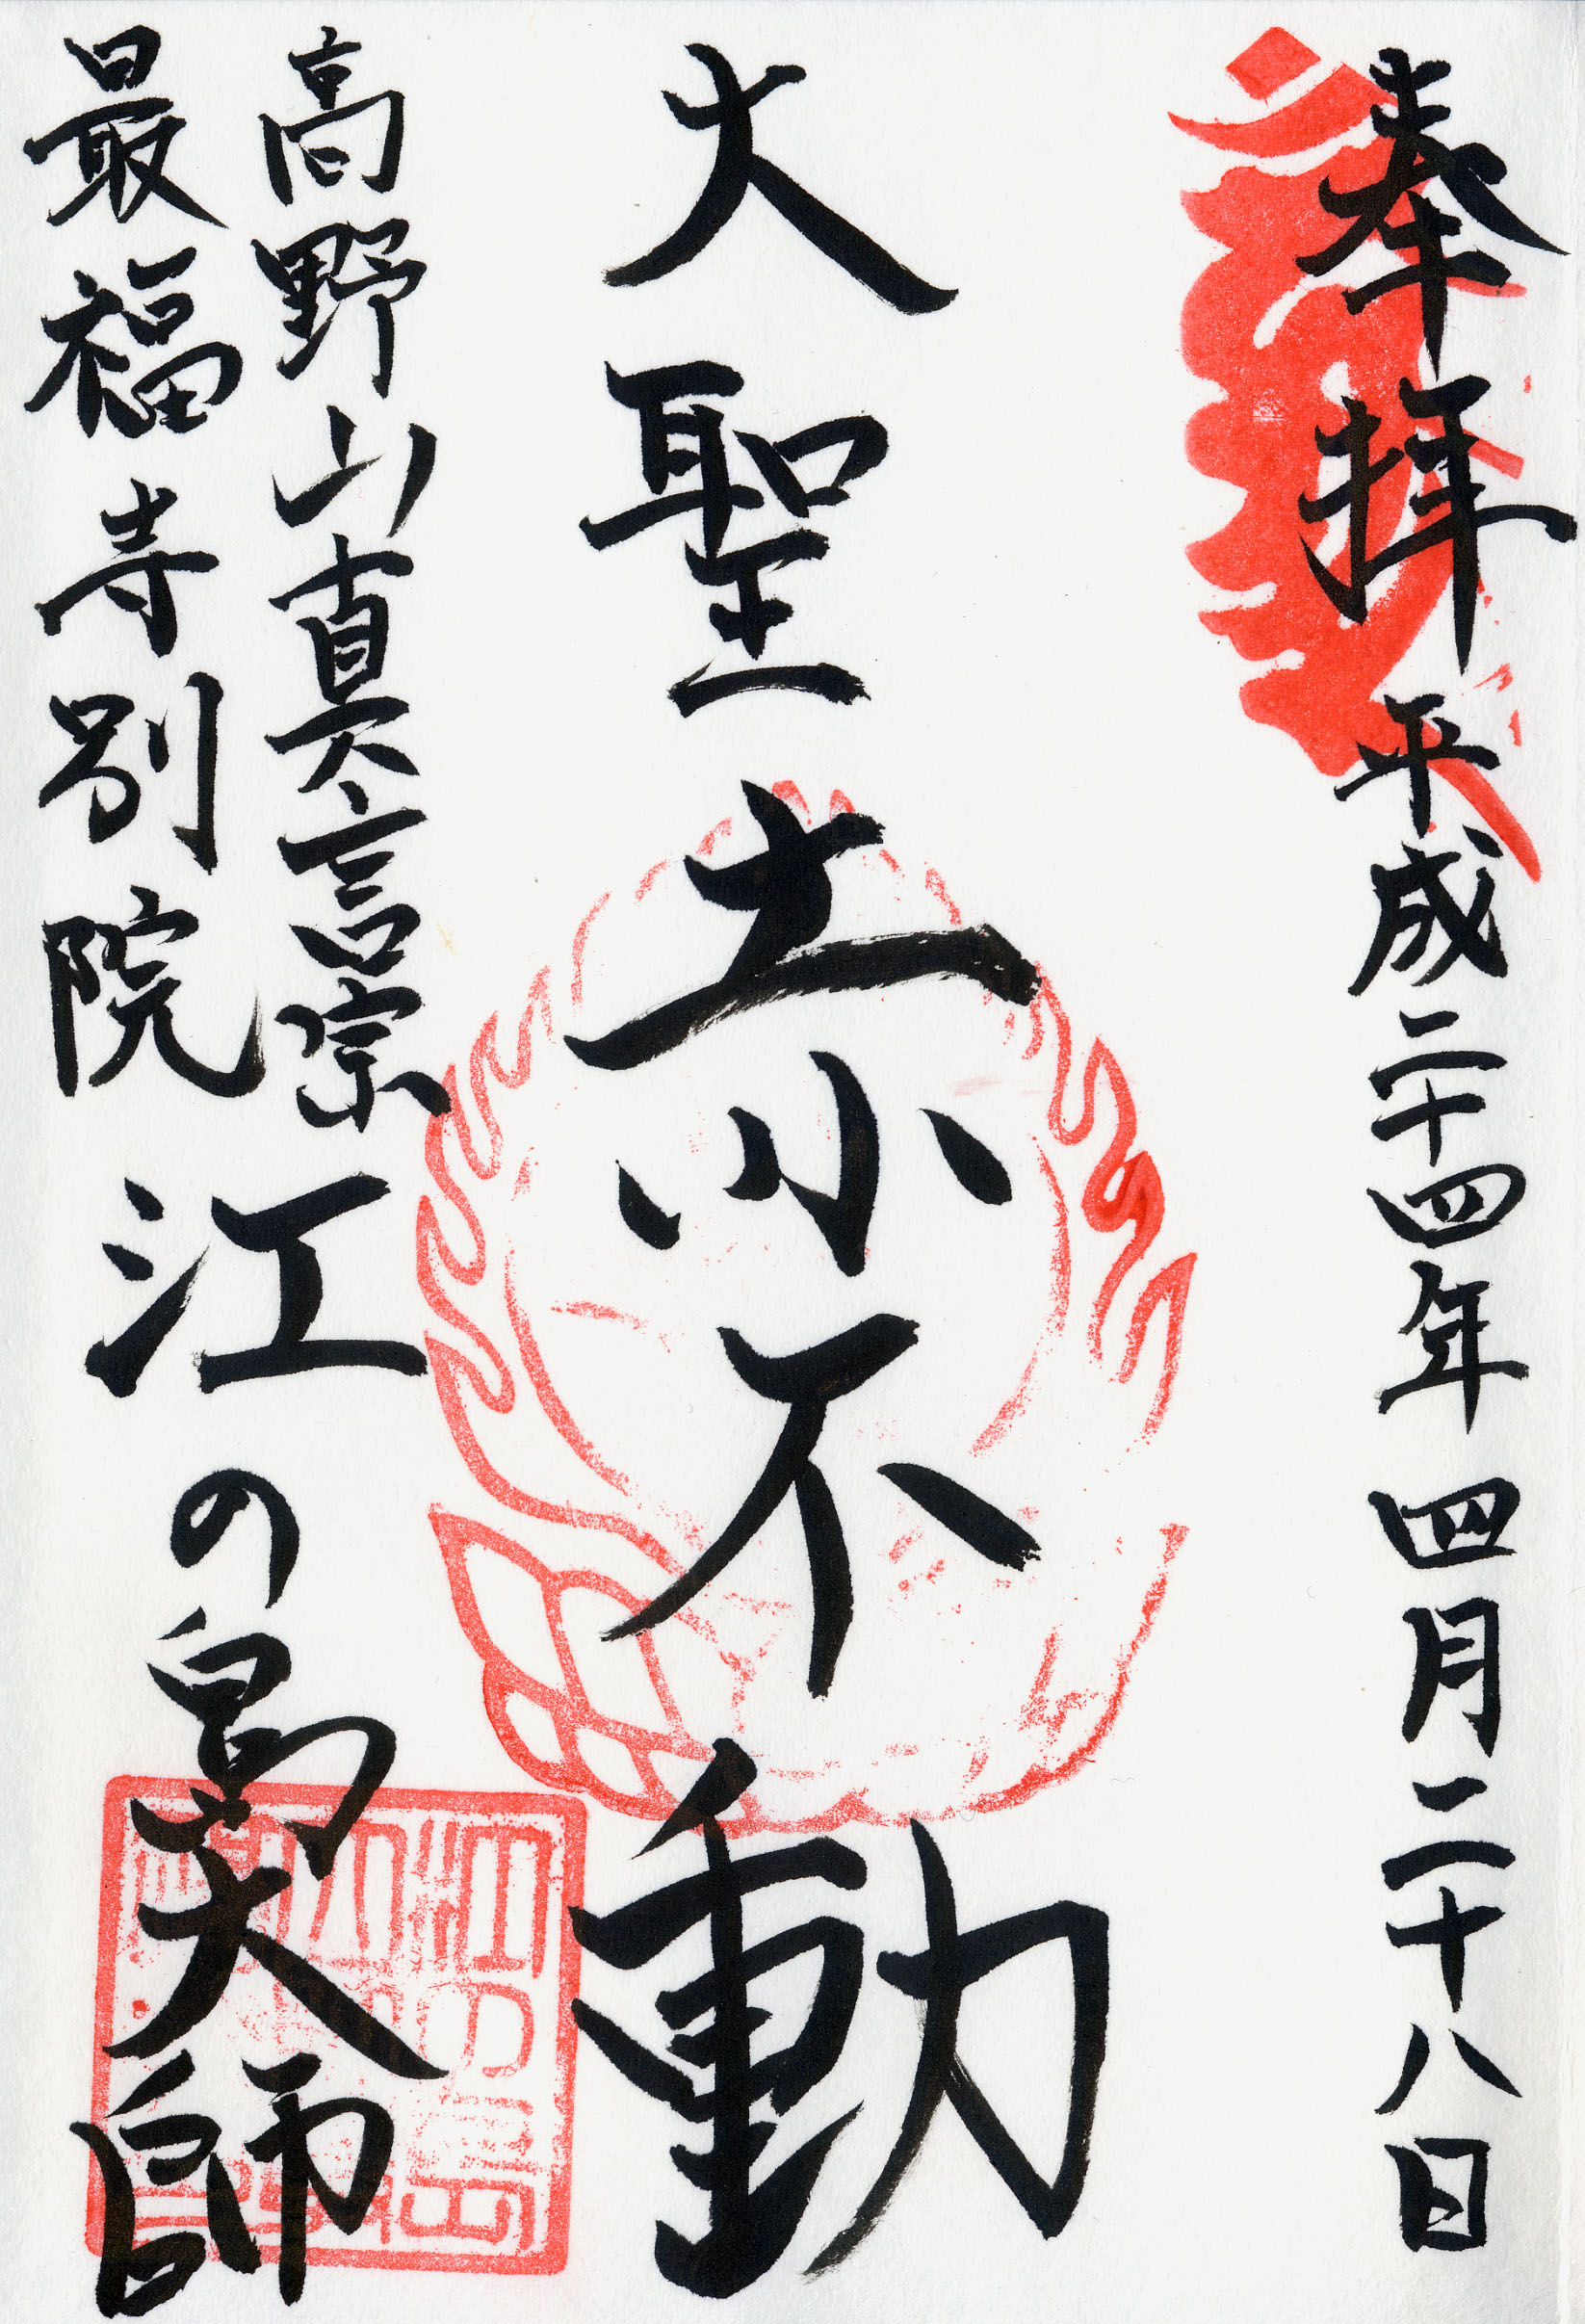 奉拝 平成二十四年 四月二十八日
大聖赤不動
高野山真言宗
最福寺別院
江の島大師